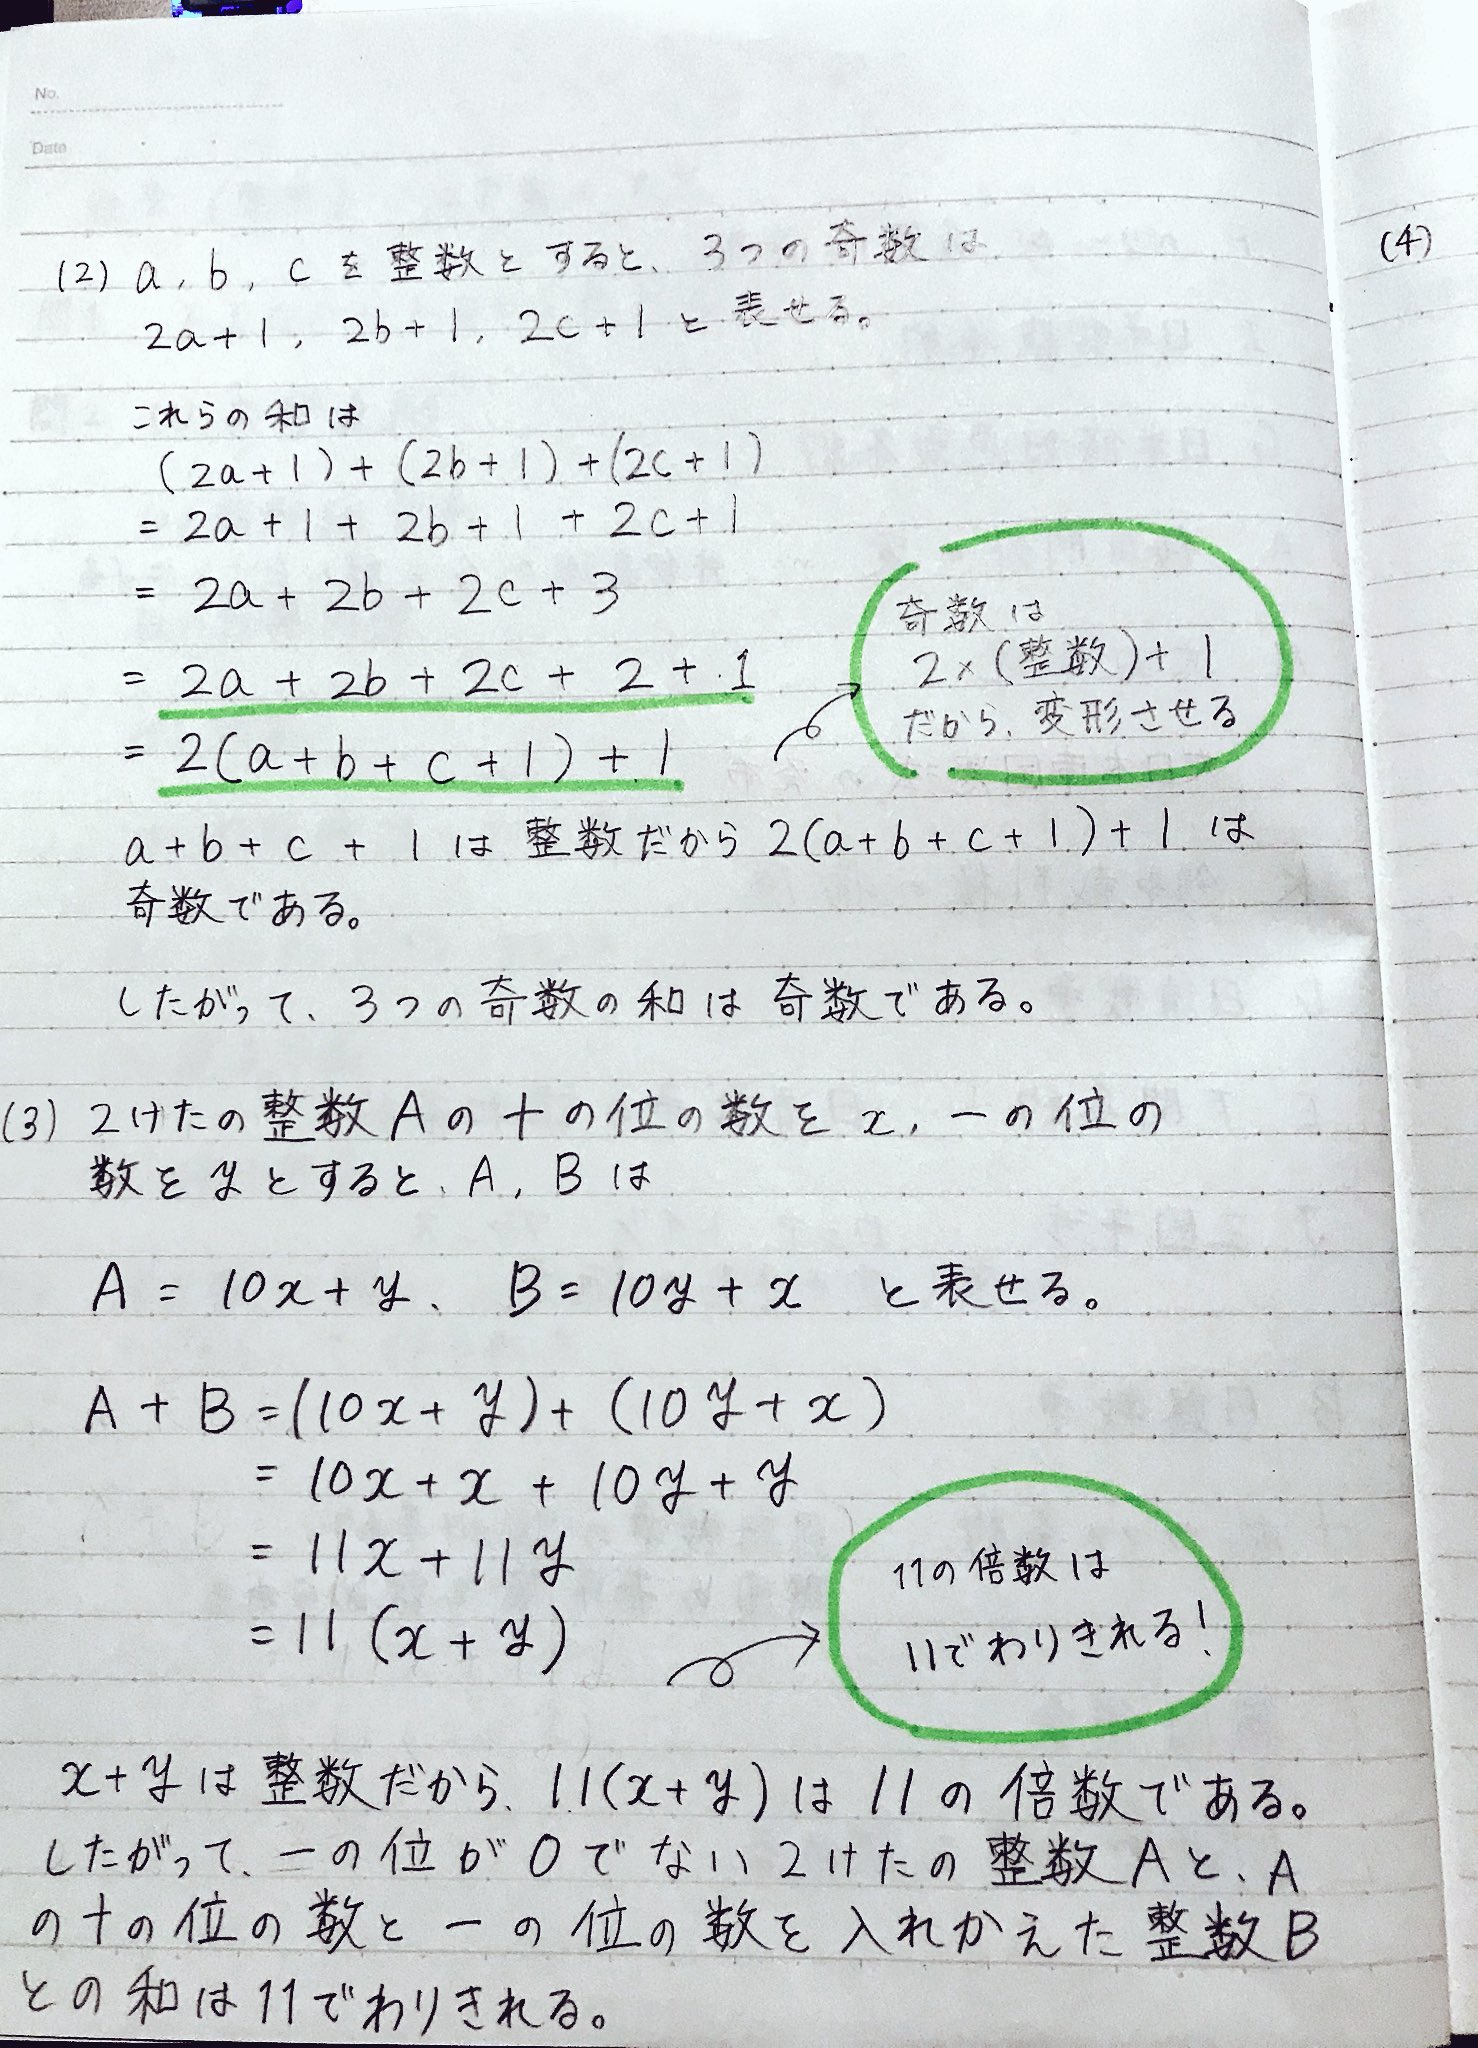 No.
Date
(2) a, b, c を整数とすると、3つの奇数は
2a+1, 2b+1, 2c+1 と表せる。
これらの和は
(2a+1)+(2b+1)+(2c+1)
= 2a+1+2b+1+2c+1
= 2a+2b+2c+3
= 2a+2b+2c+2+1
= 2(a+b+c+1)+1
奇数は
2×(整数)+1
だから、変形させる
a+b+c+1は整数だから2(a+b+c+1)+1は
奇数である。
したがって、3つの奇数の和は奇数である。
(3) 2けたの整数Aの十の位の数をx, 一の位の
数をyとすると、A, Bは
A = 10x+y、 B = 10y+x と表せる。
A+B=(10x+y)+(10y+x)
= 10x+x+10y+y
= 11x+11y
= 11(x+y)
11の倍数は
11でわりきれる!
x+yは整数だから、11(x+y)は11の倍数である。
したがって、一の位が0でない2けたの整数Aと、A
の十の位の数と一の位の数を入れかえた整数B
との和は11でわりきれる。
(4)